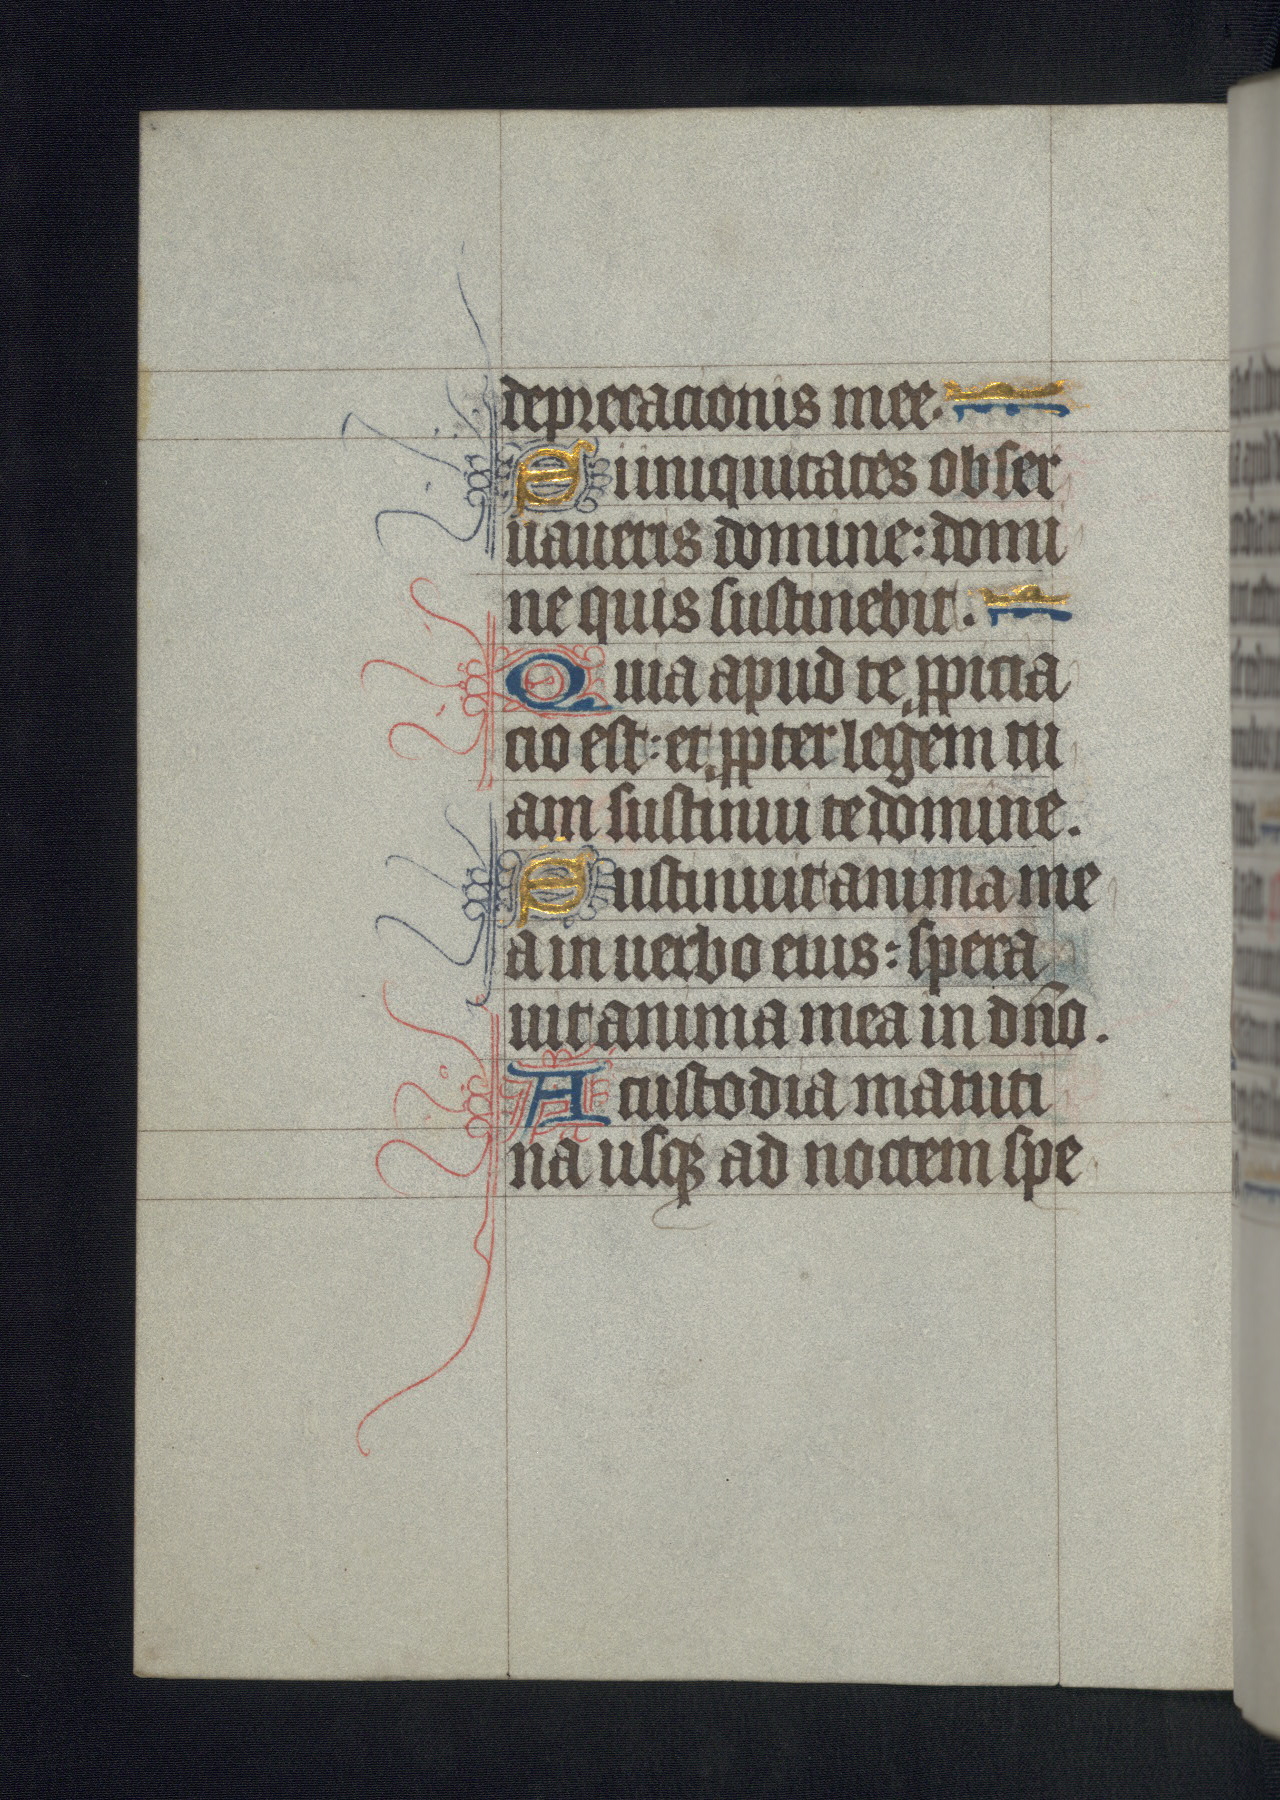 deprecacionis mee.
Si iniquitates obser
uaueris domine: domi
ne quis sustinebit.
Quia apud te ꝓpicia
cio est: et ꝓpter legem tu
am sustinui te domine.
Sustinuit anima me
a in uerbo eius: spera
uit anima mea in dño.
A custodia matuti
na usqꝫ ad noctem spe